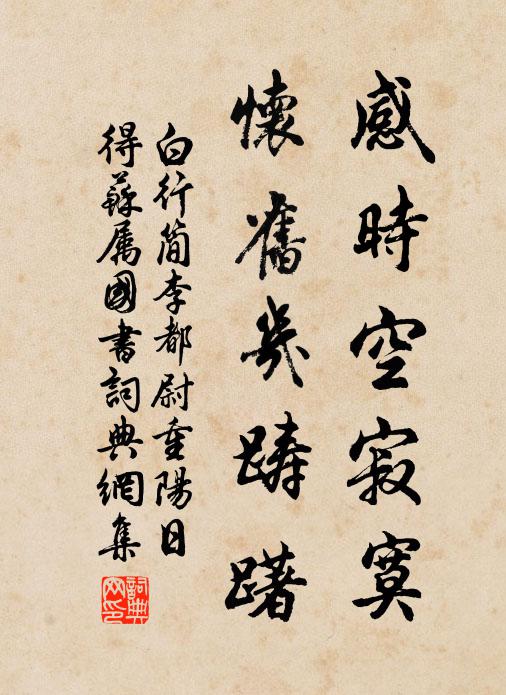 感時空寂寞
懷舊幾躊躇
白行簡李都尉重陽日
得蘇属國書詞典網集
詞典网印